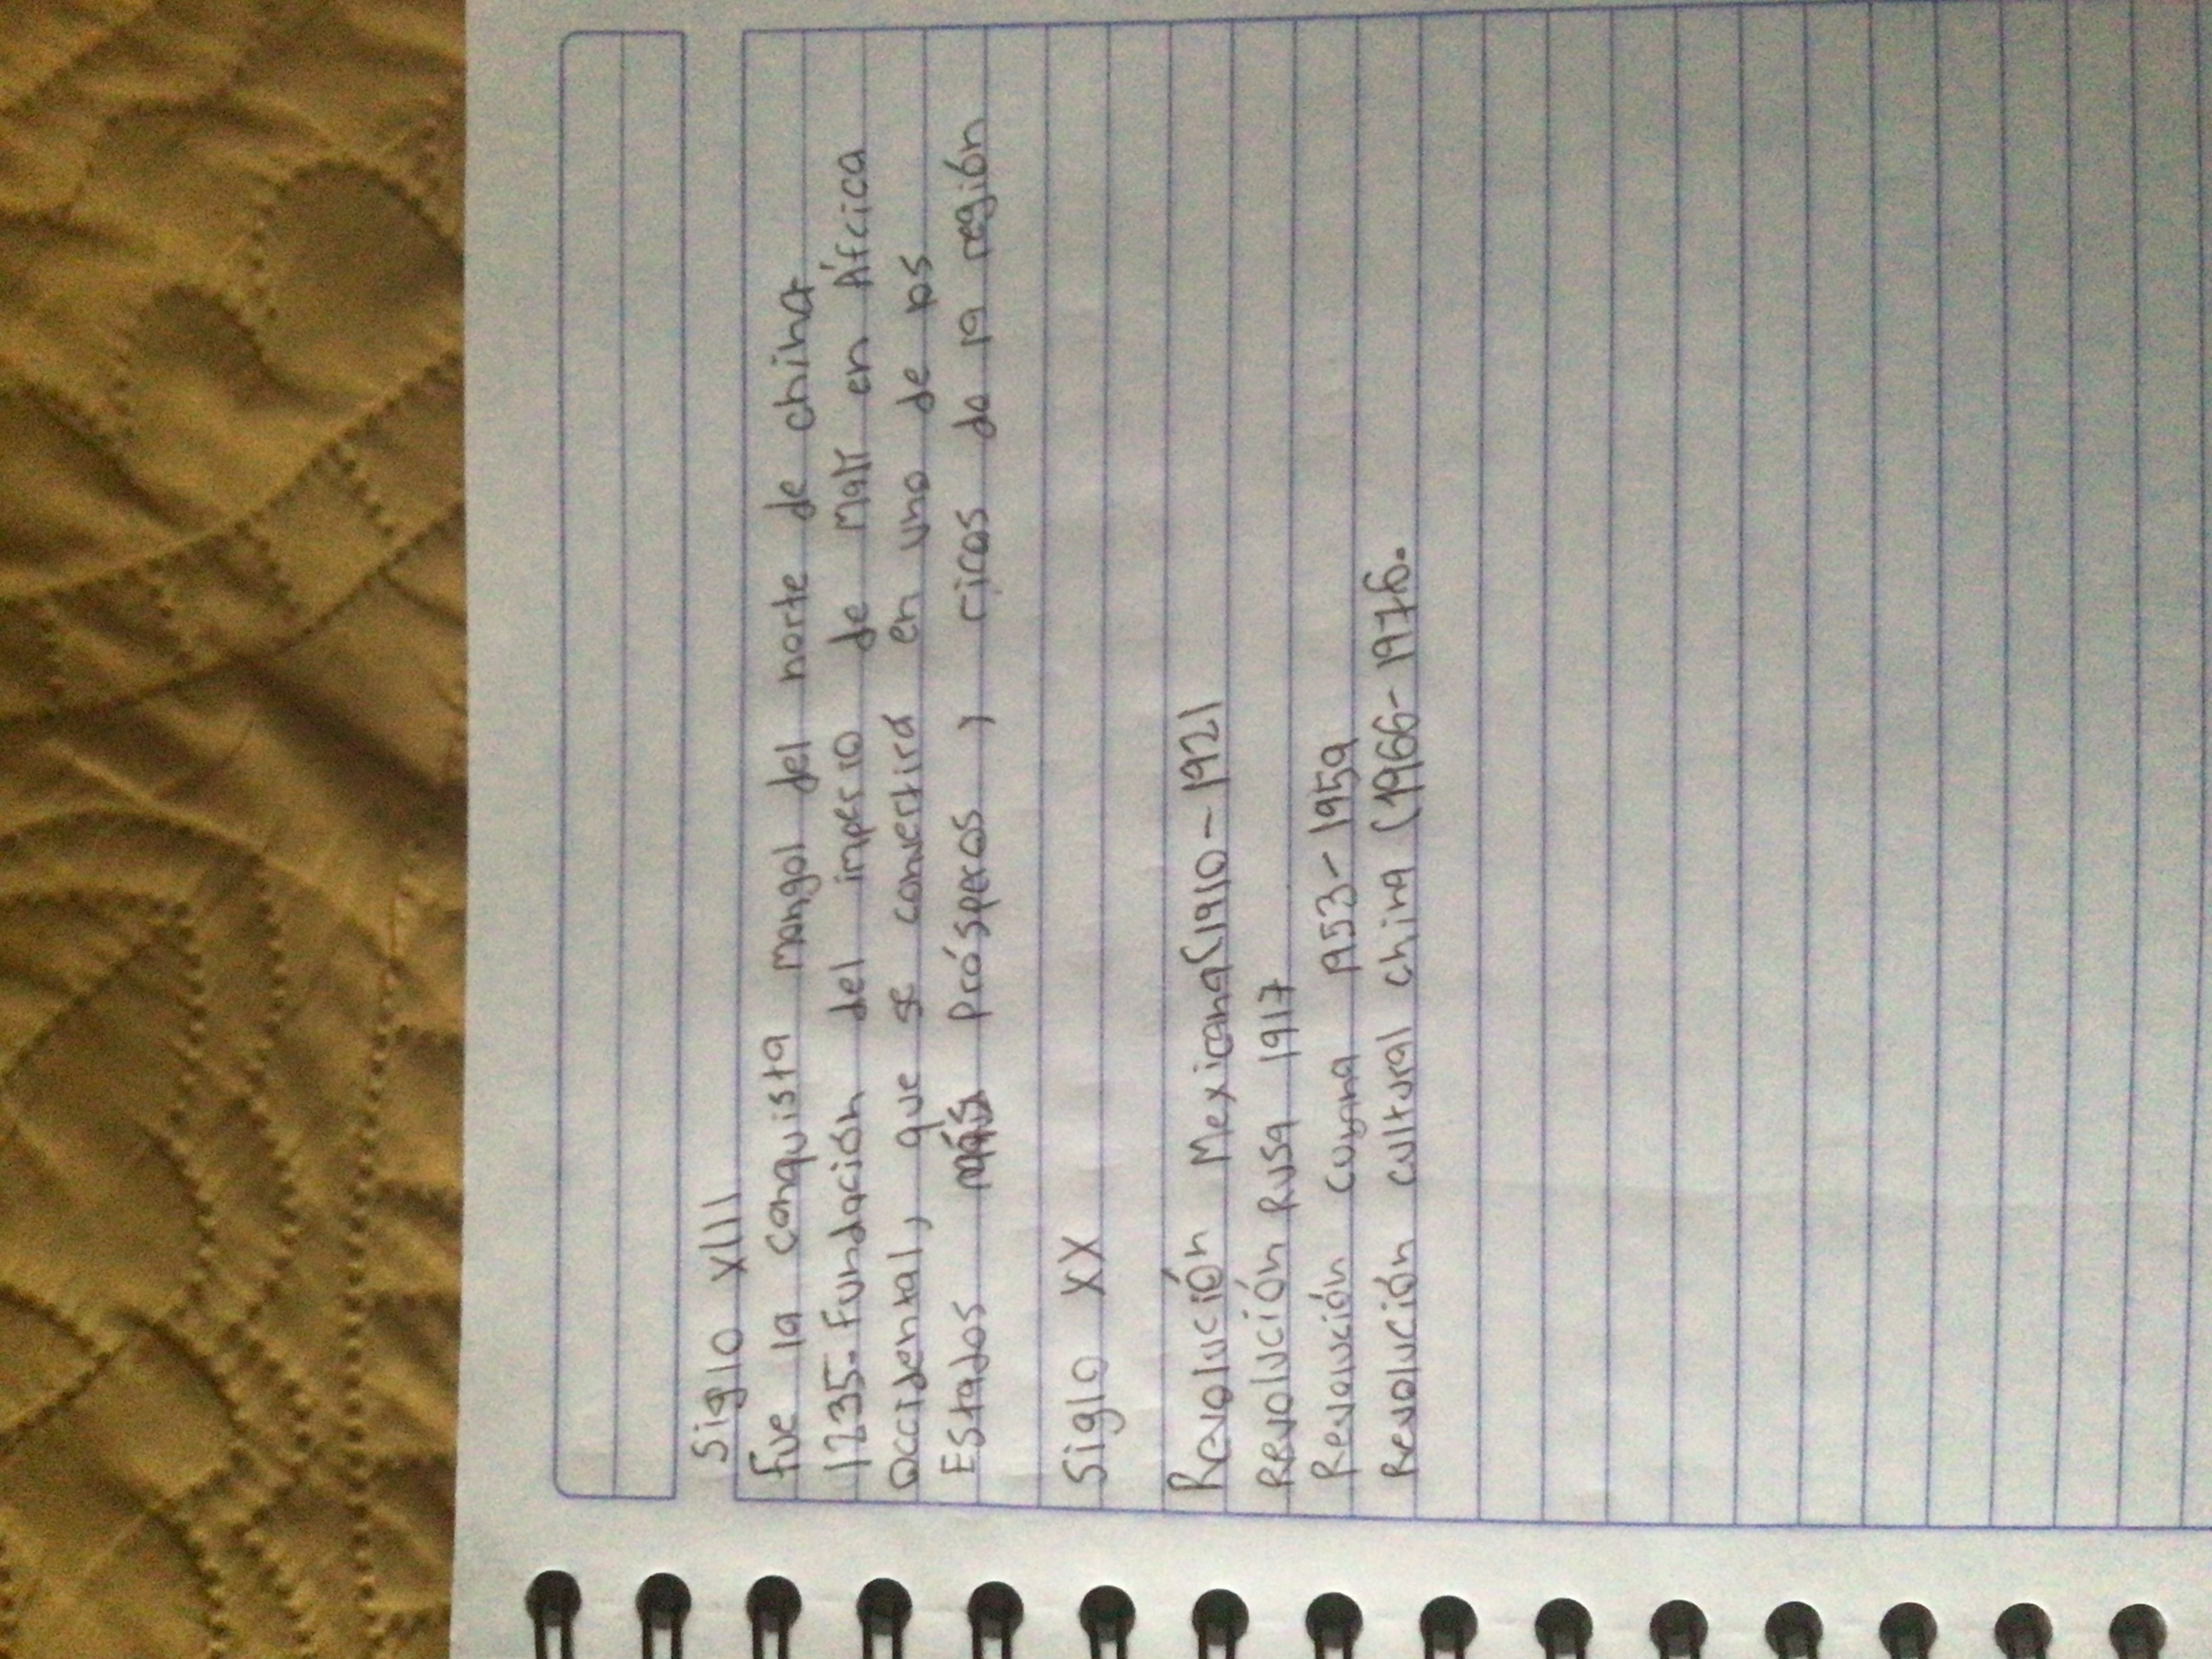 Siglo XIII
Fue la conquista mongol del norte de china
1235-Fundación del imperio de Malí en África
Occidental, que se convertirá en uno de los
Estados más prósperos y ricos de la región
Siglo XX
Revolución Mexicana (1910-1921
Revolución Rusa 1917
Revolución Cubana 1953-1959
Revolución cultural china (1966-1976.